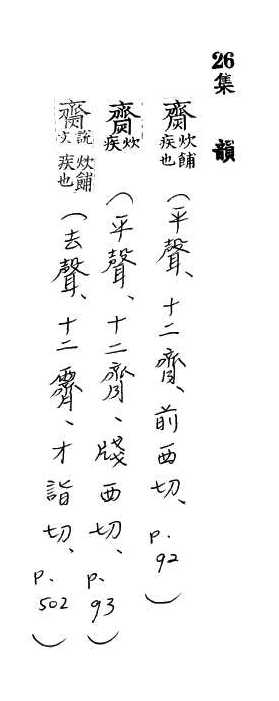 26 集韻
齌 炊餔疾也(平聲、十二齊、前西切、P.92)
齌 炊疾(平聲、十二齊、牋西切、P.93)
齌 說文炊餔疾也(去聲、十二霽、才詣切、P.502)